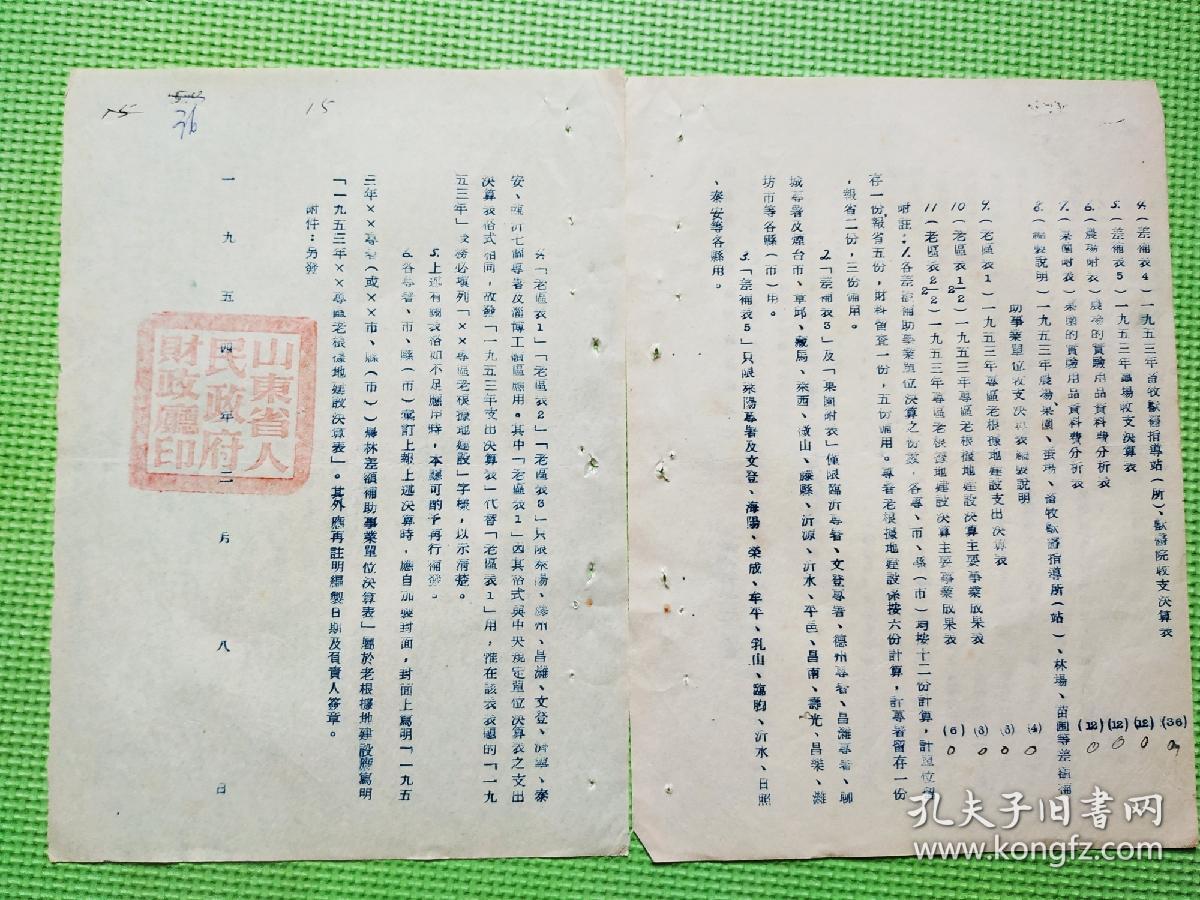 4.(差補表4)一九五三年畜牧獸醫指導站(所)、獸醫院收支決算表 (36)
5.(差補表5)一九五三年蠶場收支決算表 (12) 0
6.(農場附表)農場的實驗用品資料費分析表 (12) 0
7.(果園附表)果園的實驗用品資料費分析表 (12) 0
8.(編製說明)一九五三年農場、果園、蠶場、畜牧獸醫指導所(站)、林場、苗圃等差額補
助事業單位收支決算表編製說明 (4) 0
9.(老區表1)一九五三年專區老根據地建設支出決算表 (3) 0
10.(老區表1/2)一九五三年專區老根據地建設決算主要事業成果表 (3) 0
11.(老區表2/2)一九五三年專區老根據地建設決算主要事業成果表 (6) 0
附註:1.各差額補助事業單位決算之份數,各專、市、縣(市)可按十二份計算,計單位留
存一份,報省五份,財科留査一份,五份備用。專署老根據地建設係按六份計算,計專署留存一份
,報省二份,三份備用。
2.「差補表3」及「果園附表」僅限臨沂專署、文登專署、德州專署、昌濰專署、聊
城專署及煙台市、章邱、藏馬、萊西、嶶山、滕縣、沂源、沂水、平邑、昌南、壽光、昌樂、濰
坊市等各縣(市)用。
3.「差補表5」只限萊陽專署及文登、海陽、榮成、牟平、乳山、臨朐、沂水、日照
、泰安等各縣用。
15
36
15
4.「老區表1」「老區表2」「老區表3」只限萊陽、膠州、昌濰、文登、濟寧、泰
安、臨沂七個專署及淄博工礦區應用。其中「老區表1」因其格式與中央規定單位決算表之支出
決算表格式相同,故發「一九五三年支出決算表」代替「老區表1」用,惟在該表表題的「一九
五三年」後務必填列「××專區老根據地建設」字樣,以示清楚。
5.上述有關表格如不足應用時,本廳可酌予再行補發。
6.各專署、市、縣(市)彙訂上報上述決算時,應自加裝封面,封面上寫明「一九五
三年××專署(或××市、縣(市))農林差額補助事業單位決算表」屬於老根據地建設應寫明
「一九五三年××專區老根據地建設決算表」。其外應再註明編製日期及負責人簽章。
附件:另發
一九五四年二月八日
山東省人
民政府
財政廳印
孔夫子旧書网
www.kongfz.com